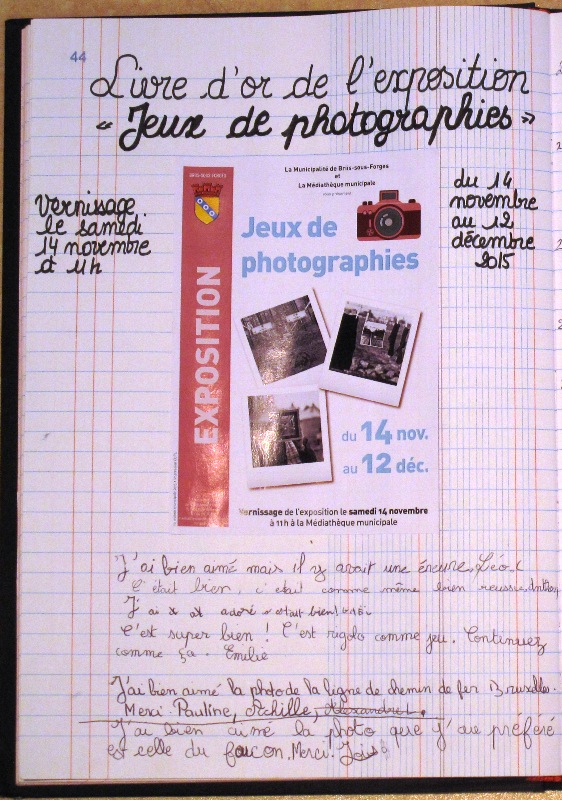 44
Livre d'or de l'exposition
"Jeux de photographies"
Vernissage
le samedi
14 novembre
à 11h
du 14
novembre
au 12
décembre
2015
BRIIS-SOUS-FORGES
La Municipalité de Briis-sous-Forges
et
La Médiathèque municipale
Jeux de
photographies
EXPOSITION
du 14 nov.
au 12 déc.
Vernissage de l'exposition le samedi 14 novembre
à 11h à la Médiathèque municipale
J'ai bien aimé mais il y avait une éreure. Léo.C
C'était bien, c'était comme même bien reussie.
J'ai adoré c'était bien!
C'est super bien ! C'est rigolo comme jeu. Continuez
comme ça. Emilie
J'ai bien aimé la photo de la ligne de chemin de fer Bruxelles.
Merci. Pauline, Achille, Alexandre L.
J'ai bien aimé la photo que j'ai préféré
est celle du faucon. Merci.